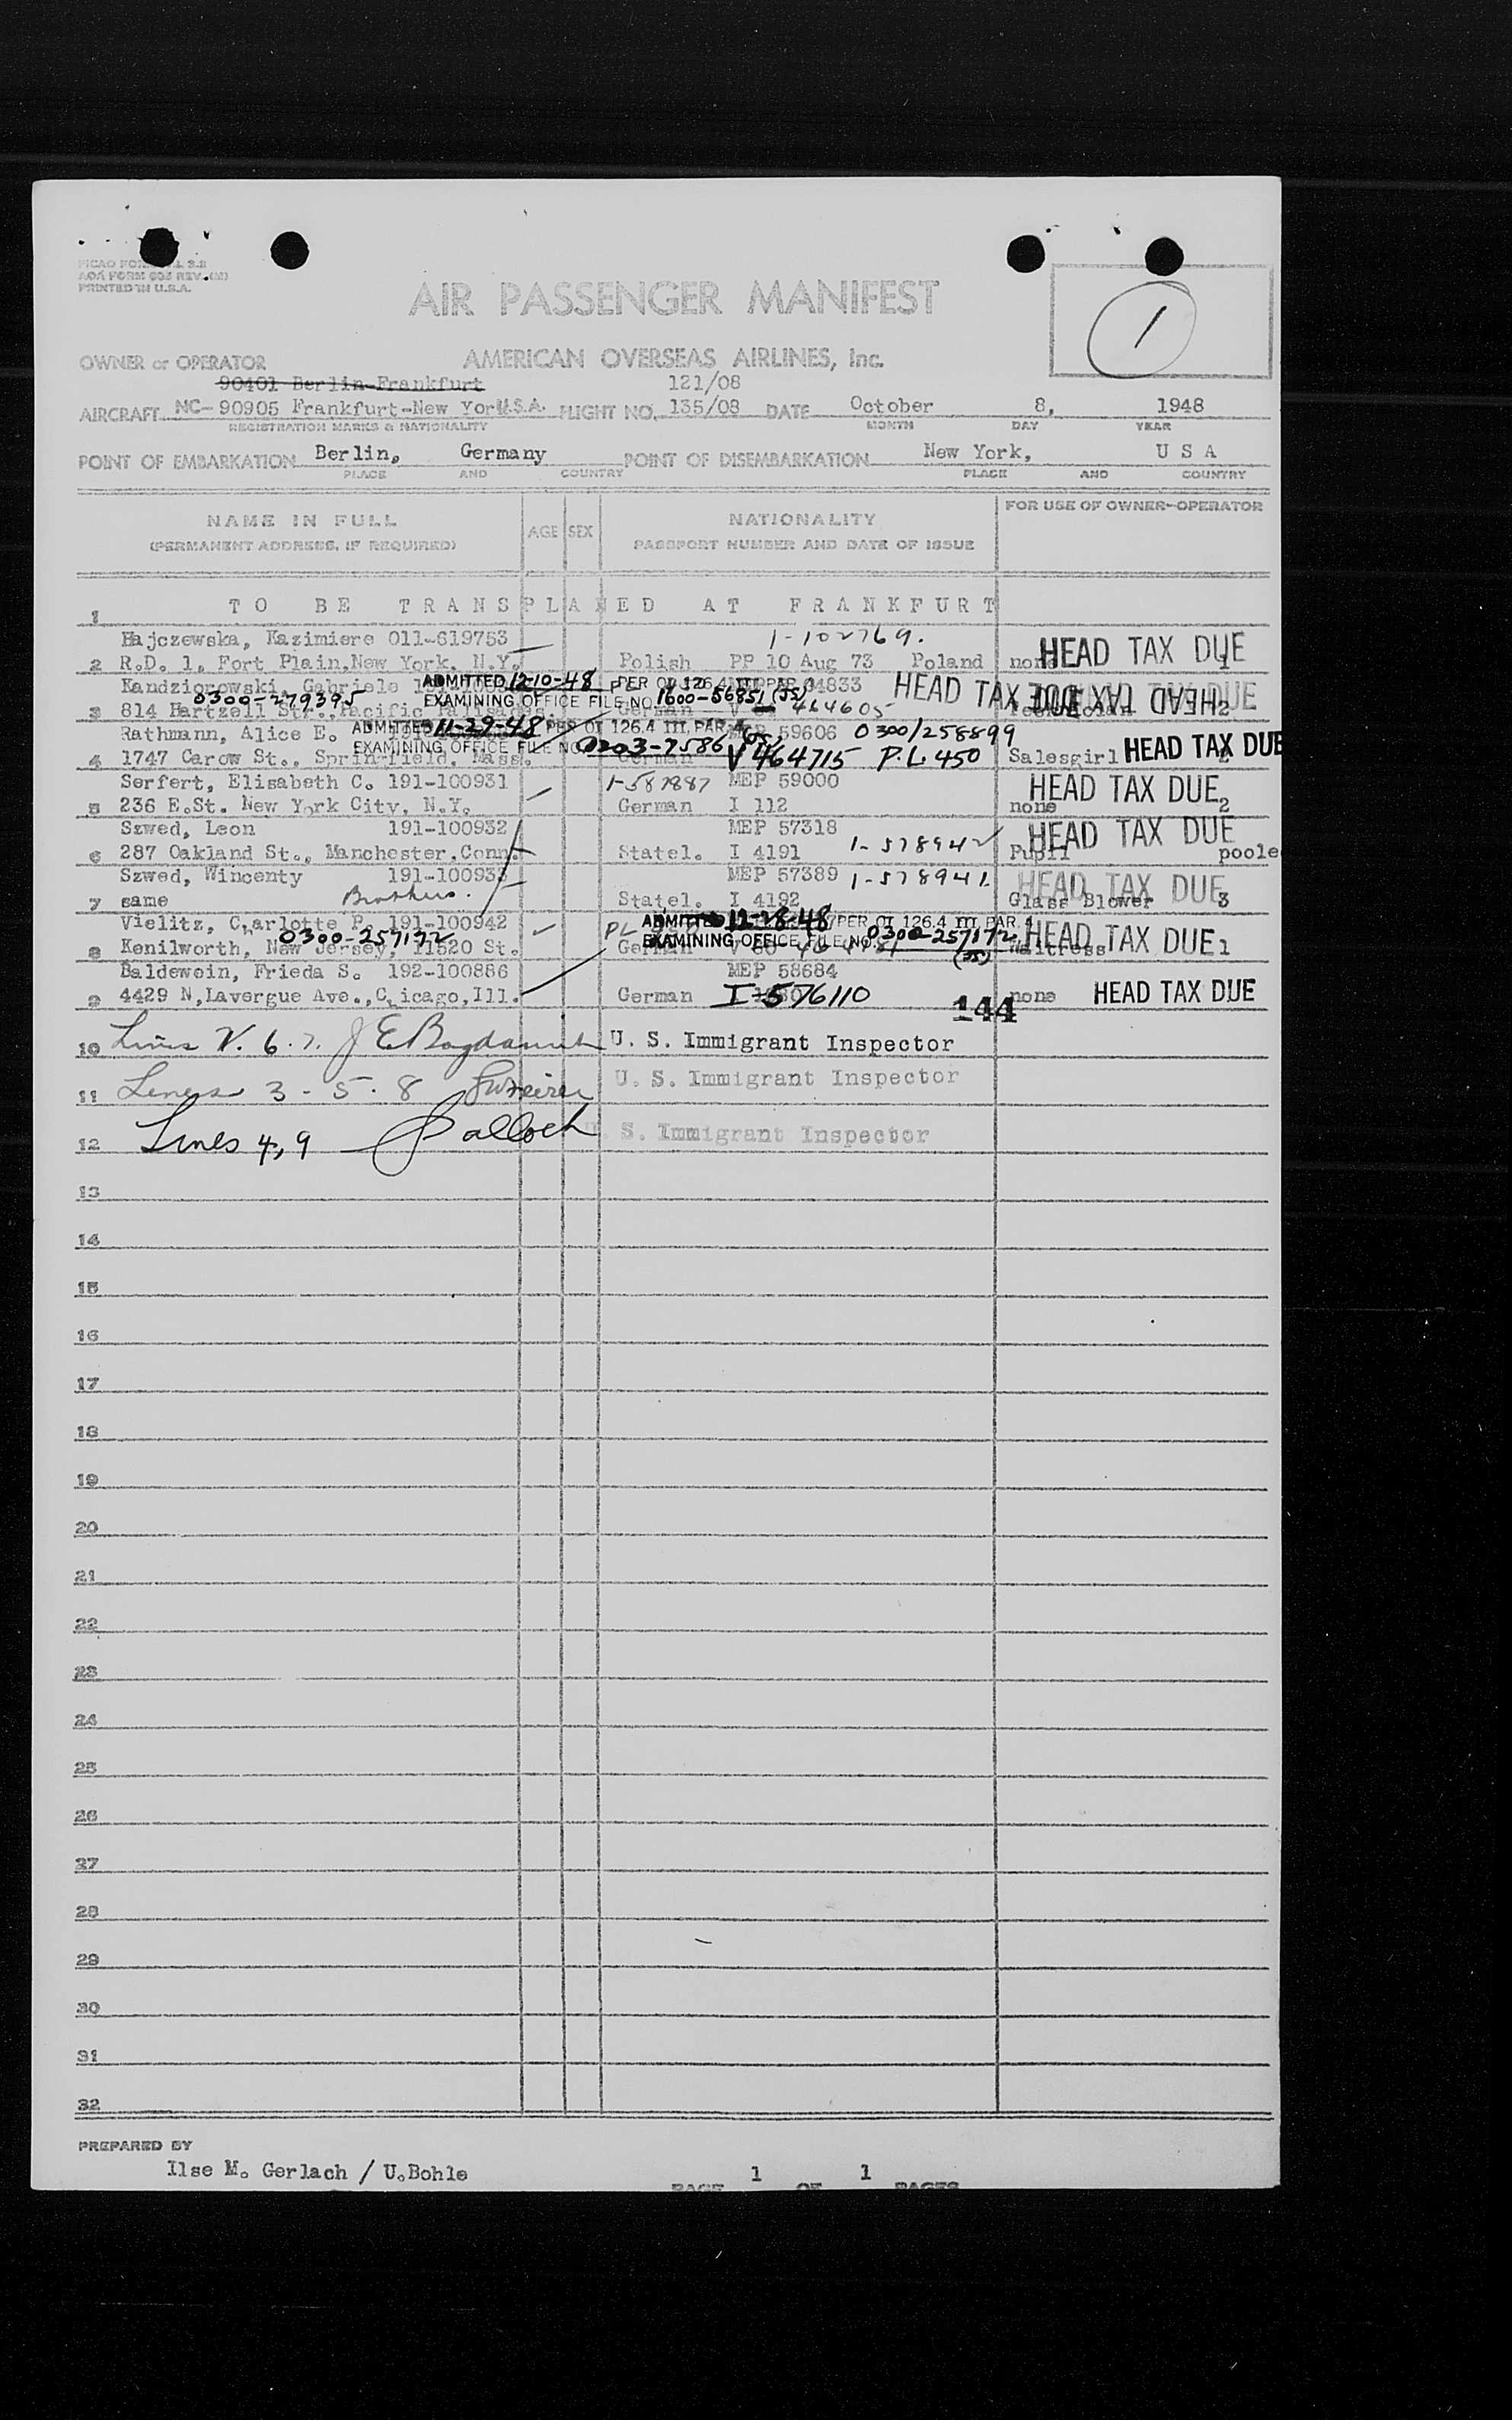 PRINTED IN U.S.A.
1
AIR PASSENGER MANIFEST
OWNER or OPERATOR AMERICAN OVERSEAS AIRLINES, Inc.
90401 Berlin-Frankfurt 121/08
AIRCRAFT NC- 90905 Frankfurt-New York U.S.A. FLIGHT NO. 135/08 DATE October 8, 1948
REGISTRATION MARKS & NATIONALITY MONTH DAY YEAR
POINT OF EMBARKATION Berlin, Germany POINT OF DISEMBARKATION New York, U S A
PLACE AND COUNTRY PLACE AND COUNTRY
NAME IN FULL AGE SEX NATIONALITY FOR USE OF OWNER-OPERATOR
(PERMANENT ADDRESS, IF REQUIRED) PASSPORT NUMBER AND DATE OF ISSUE
1 TO BE TRANSPLANED AT FRANKFURT
Hajczewska, Kazimiere 011-619753 1-102769.
2 R.D. 1, Fort Plain, New York, N.Y. Polish PP 10 Aug 73 Poland none HEAD TAX DUE 1
Kandziorowski, Gabriele ADMITTED 12-10-48 PER OI 126.4 III PAR 4 HEAD TAX DUE
0300-279395 EXAMINING OFFICE FILE NO. 1600-56851 (JS)
3 814 Hartzell Str., Pacific Palisades. German V 464605 2
Rathmann, Alice E. ADMITTED 11-29-48 PER OI 126.4 III, PAR. 4 59606 0300/258899
EXAMINING OFFICE FILE NO. 0203-7586
4 1747 Carow St., Springfield, Mass. German V 464715 P.L. 450 Salesgirl HEAD TAX DUE
Serfert, Elisabeth C. 191-100931 1-587887 MEP 59000 HEAD TAX DUE
5 236 E.St. New York City, N.Y. German I 112 none 2
Szwed, Leon 191-100932 MEP 57318 HEAD TAX DUE
6 287 Oakland St., Manchester, Conn. Statel. I 4191 1-578942 Pupil pooled
Szwed, Wincenty 191-100933 MEP 57389 1-578941 HEAD TAX DUE
7 same Brothers. Statel. I 4192 Glass Blower 3
Vielitz, Charlotte P. 191-100942 ADMITTED 12-28-48 PER OI 126.4 III PAR. 4
0300-257172 PL EXAMINING OFFICE FILE NO. 0300-257172 (JS) HEAD TAX DUE
8 Kenilworth, New Jersey, 11520 St. German Waitress 1
Baldewein, Frieda S. 192-100886 MEP 58684
9 4429 N, Lavergue Ave., Chicago, Ill. German I-576110 144 none HEAD TAX DUE
10 Lines 2. 6. 7. U. S. Immigrant Inspector
11 Lines 3 - 5. 8 U. S. Immigrant Inspector
12 Lines 4, 9 S. Immigrant Inspector
13
14
15
16
17
18
19
20
21
22
23
24
25
26
27
28
29
30
31
32
PREPARED BY
Ilse M. Gerlach / U.Bohle PAGE 1 OF 1 PAGES